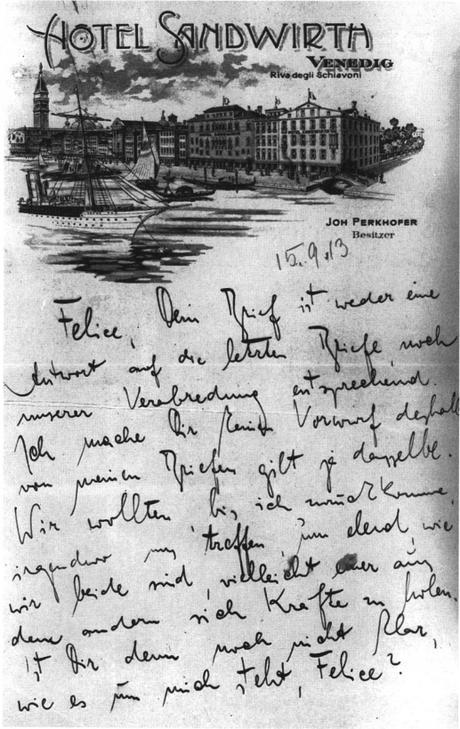 HOTEL SANDWIRTH
VENEDIG
Riva degli Schiavoni
JOH PERKHOFER
Besitzer
15.9.13
Felice, Dein Brief ist weder eine
Antwort auf die letzten Briefe, noch
unserer Verabredung entsprechend.
Ich mache Dir keinen Vorwurf deshalb
von meinen Briefen gilt ja dasselbe.
Wir wollten, bis ich zurückkomme,
irgendwo uns treffen, um elend, wie
wir beide sind, vielleicht einer aus
dem andern sich Kräfte zu holen.
Ist Dir denn noch nicht klar,
wie es um mich steht, Felice?